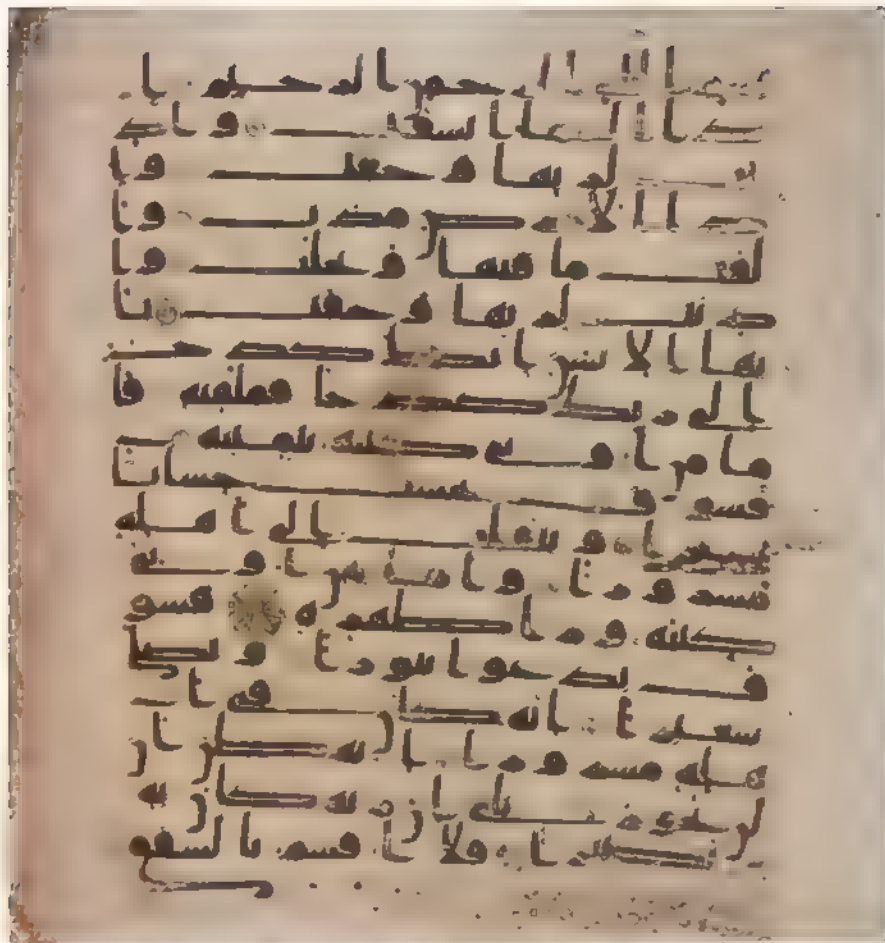 بسم الله الرحمن الرحيم ا
ذا السما انشقت و اذ
نت لربها و حقت و ا
ذا الارض مدت و ا
لقت ما فيها و تخلت و ا
ذنت لربها و حقت يا
يها الانسن انك كدح
الى ربك كدحا فملقيه فا
ما من اوتى كتبه بيمينه
فسوف يحسب حسابا
يسيرا و ينقلب الى اهله
مسرورا و اما من اوتى
كتبه ورا ظهره فسو
ف يدعوا ثبورا و يصلى
سعيرا انه كان فى ا
هله مسرورا انه ظن ان
لن يحور بلى ان ربه كان به
بصيرا فلا اقسم بالشفق